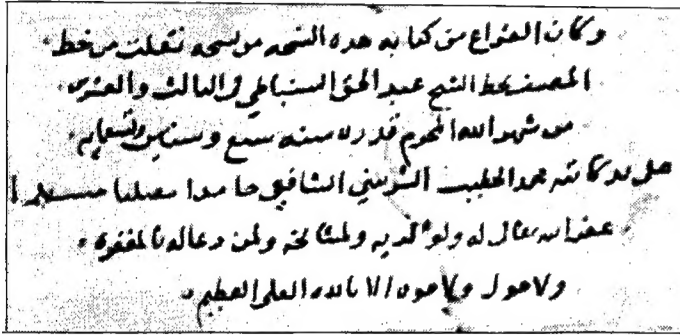 وكان الفراغ من كتابه هده النسخه من نسخه نقلت من خط
المصنف بخط الشيخ عبد الحق السنباطي في الثالث والعشرين
من شهر الله المحرم سنه سبع وستين وتسعمايه
على يد كاتبه محمد الخطيب الشربيني الشافعي حامدا مصليا مسلما
غفر الله تعالى له ولوالديه ولمشايخه ولمن دعا له بالمغفره
ولا حول ولا قوه الا بالله العلي العظيم